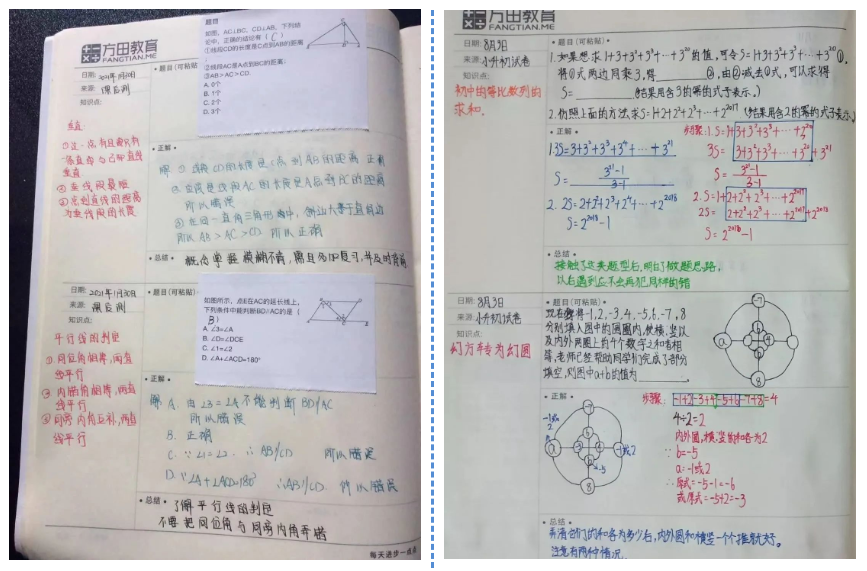 方田教育
FANGTIAN.ME
日期: 2021年1月30日
来源: 课后测
知识点:
垂直
① 过一点有且只有
一条直线与已知直线
垂直
② 垂线段最短
③ 点到直线的距离
为垂线段的长度
•题目(可粘贴)
题目
如图, AC⊥BC, CD⊥AB, 下列结
论中, 正确的结论有( C )
①线段CD的长度是C点到AB的距离
②线段AC是A点到BC的距离;
③AB>AC>CD.
A. 0个
B. 1个
C. 2个
D. 3个
•正解•
解: ① 线段CD的长度是C点到AB的距离 正确
② 应该是线段AC的长度是A点到BC的距离
所以错误
③ 在同一直角三角形中, 斜边大于直角边
所以AB>AC>CD 所以正确
•总结•
概念掌握模糊不清, 需且多加复习, 并及时背诵
日期: 2021年1月30日
来源: 课后测
知识点:
平行线的判定
① 同位角相等, 两直
线平行
② 内错角相等, 两直
线平行
③ 同旁内角互补, 两直
线平行
•题目(可粘贴)
如图所示, 点E在AC的延长线上,
下列条件中能判断BD//AC的是(
B )
A. ∠3=∠A
B. ∠D=∠DCE
C. ∠1=∠2
D. ∠A+∠ACD=180°
•正解•
解: A. 由∠3=∠A不能判断BD//AC
所以错误
B. 正确
C. ∵∠1=∠2 ∴AB//CD 所以错误
D. ∵∠A+∠ACD=180° ∴AB//CD 所以错误
•总结•
了解平行线的判定
不要把同位角与同旁内角弄错
每天进步一点点
方田教育
FANGTIAN.ME
日期: 8月3日
来源: 小升初试卷
知识点:
初中的等比数列的
求和.
•题目(可粘贴)
1. 如果想求1+3+3²+3³+…+3²⁰的值, 可令S=1+3+3²+3³+…+3²⁰①,
将①式两边同乘3, 得 ②, 由②减去①式, 可以求得
S= (结果用含3的幂的式子表示.)
2. 仿照上面的方法, 求S=1+2+2²+2³+…+2²⁰¹⁷ (结果用含2的幂的式子表示)
•正解•
1. 3S=3+3²+3³+3⁴+…+3²¹
S=(3²¹-1)/(3-1)
2. 2S=2+2²+2³+2⁴+…+2²⁰¹⁸
S=2²⁰¹⁸-1
步骤: 1. S=1+3+3²+3³+…+2²⁰
3S=3+3²+3³+…+3²⁰+3²¹
S=(3²¹-1)/(3-1)
2. S=1+2+2²+2³+…+2²⁰¹⁷
2S=2+2²+2³+…+2²⁰¹⁷+2²⁰¹⁸
S=2²⁰¹⁸-1
•总结•
接触了这类题型后, 明白了做题思路,
以后遇到应不会再犯同样的错
日期: 8月3日
来源: 小升初试卷
知识点:
幻方转为幻圆
•题目(可粘贴)
现在将-1,2,-3,4,-5,6,-7,8
分别填入图中的圆圈内, 使横、竖以
及内外两圈上的4个数字之和都相
等, 老师已经帮助同学们完成了部分
填空, 则图中a+b的值为
-7
a
8
•正解•
-7
-1或2
a
-1或2
b=-5
8
步骤: -1+2-3+4-5+6-7+8=4
4÷2=2
内外圆, 横、竖的和各为2
∵b=-5
a=-1或2
∴原式=-5-1=-6
或原式=-5+2=-3
•总结•
弄清它们的和各为多少后, 内外圆和横竖一个个推就好。
注意有两种情况.